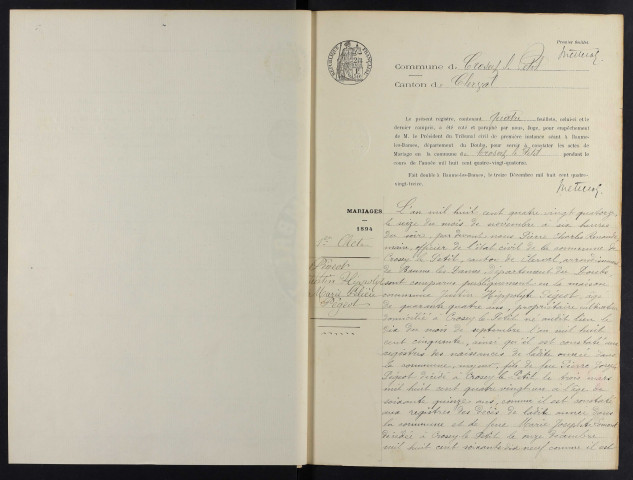 Premier feuillet
RÉPUBLIQUE FRANÇAISE
Commune de Crosey le Petit
Canton de Clerval
Le présent registre, contenant quatre feuillets, celui-ci et le
dernier compris, a été coté et paraphé par nous, Juge, pour empêchement
de M. le Président du Tribunal civil de première instance séant à Baume-
les-Dames, département du Doubs, pour servir à constater les actes de
Mariage en la commune de Crosey le Petit pendant le
cours de l'année mil huit cent quatre-vingt-quatorze.
Fait double à Baume-les-Dames, le treize Décembre mil huit cent quatre-
vingt-treize.
MARIAGES
1894
1er Acte
Hippolyte
Marie
Pegeot
L'an mil huit cent quatre vingt quatorze
le onze du mois de novembre à six heures
du soir, par devant nous Pierre Charles
maire, officier de l'état civil de la commune de
Crosey le Petit, canton de Clerval, arrondissement
de Baume les Dames département du Doubs
sont comparus publiquement en la maison
commune Justin Hippolyte Pegeot, âgé
de quarante quatre ans, propriétaire cultivateur
domicilié à Crosey le Petit né audit lieu le
dix du mois de septembre l'an mil huit
cent cinquante, ainsi qu'il est constaté aux
registres des naissances de ladite année dans
la commune, majeur, fils de feu Pierre Joseph
Pegeot décédé à Crosey le Petit le trois mars
mil huit cent quatre vingt un à l'âge de
soixante quinze ans, comme il est constaté
aux registres des décès de ladite année dans
la commune et de feue Marie Josephte
décédée à Crosey le Petit le onze décembre
mil huit cent soixante dix neuf comme il est